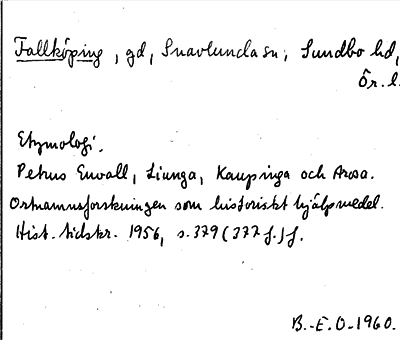 Fallköping, gd, Snavlunda sn, Sundbo hd,
Ör. l.
Etymologi.
Petrus Envall, Liunga, Kaupinga och Arosa.
Ortnamnsforskningen som historiskt hjälpmedel.
Hist. tidskr. 1956, s. 379 (377 f.) f.
B.-E. O. 1960.